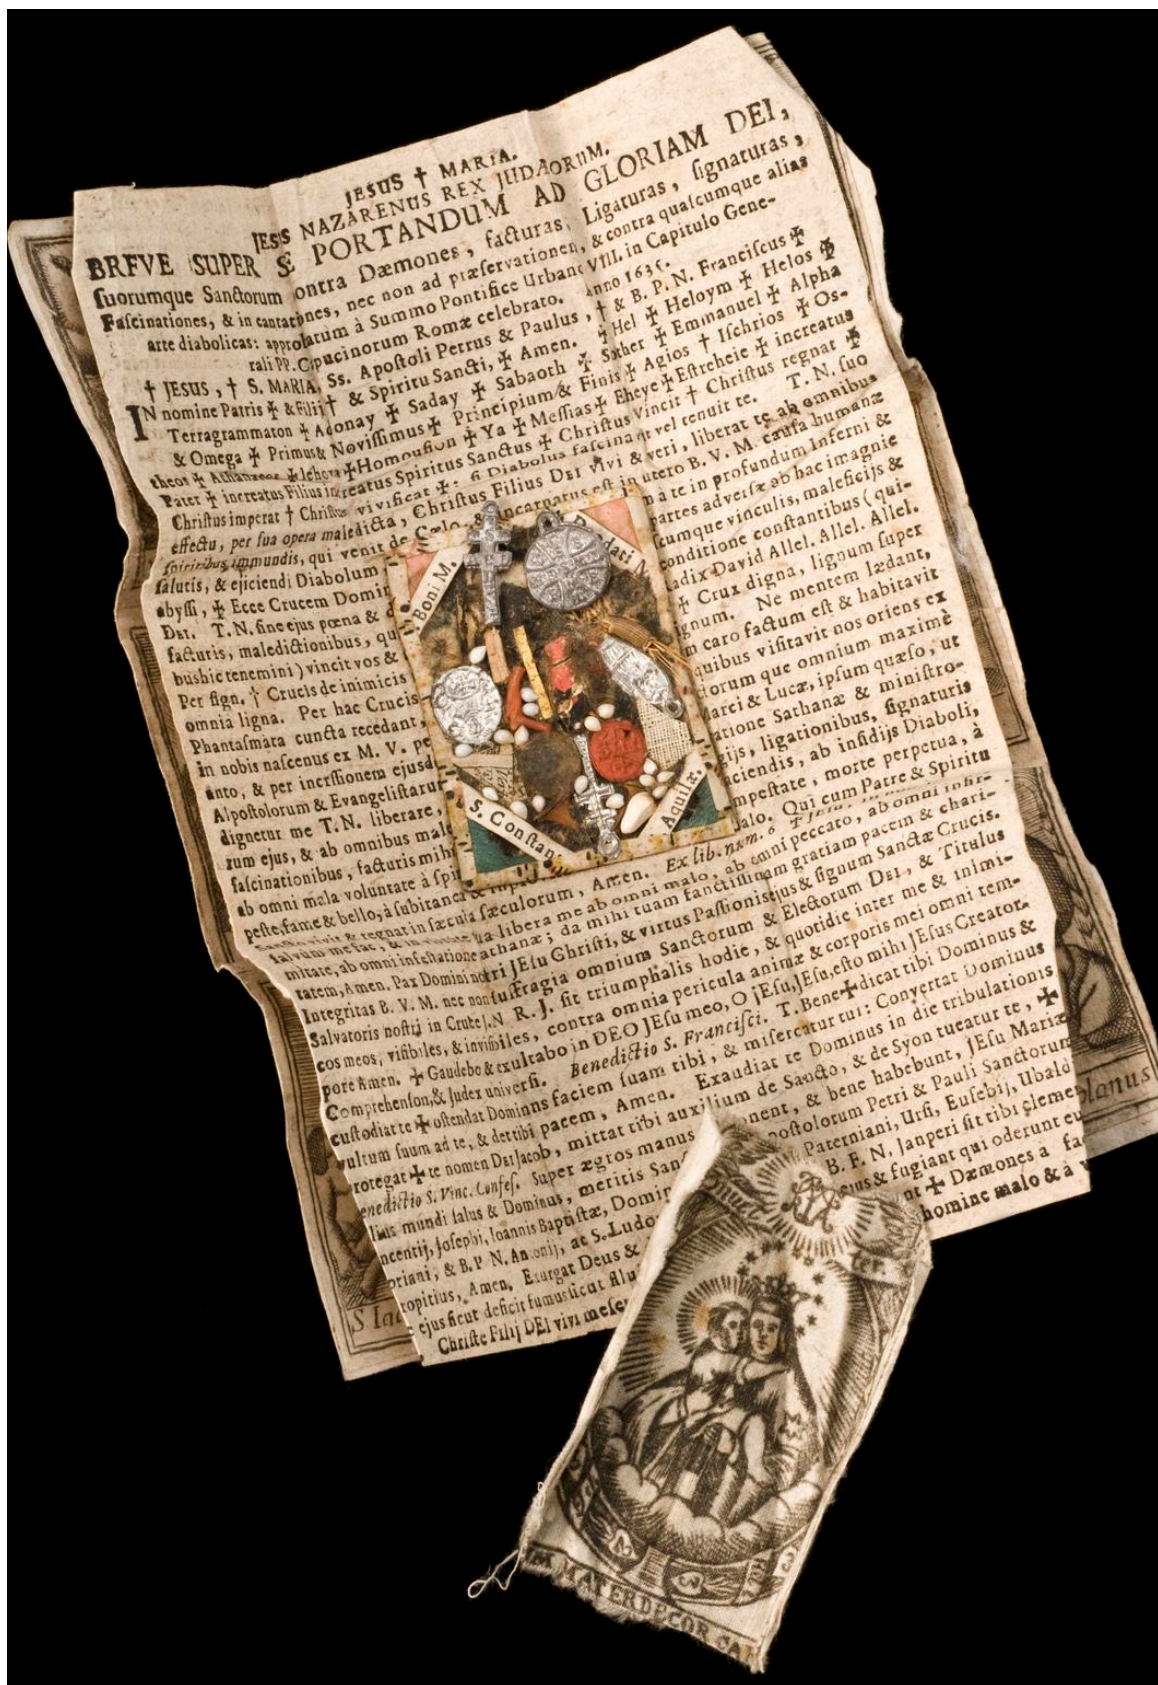 JESUS † MARIA.
JESUS NAZARENUS REX JUDÆORUM.
BREVE SUPER SE PORTANDUM AD GLORIAM DEI,
ſuorumque Sanctorum contra Dæmones, facturas, Ligaturas, ſignaturas,
Faſcinationes, & incantationes, nec non ad præſervationem, & contra quaſcumque alias
arte diabolicas: approbatum à Summo Pontifice Urbano VIII. in Capitulo Gene-
rali PP. Capucinorum Romæ celebrato. Anno 1635.
† JESUS, † S. MARIA, Ss. Apoſtoli Petrus & Paulus, † & B. P. N. Franciſcus ✠
IN nomine Patris ✠ & Filij † & Spiritu Sancti, ✠ Amen. ✠ Hel ✠ Heloym ✠ Helos ✠
Terragrammaton ✠ Adonay ✠ Saday ✠ Sabaoth ✠ Sother ✠ Emmanuel ✠ Alpha
& Omega ✠ Primus & Noviſſimus ✠ Principium & Finis ✠ Agios † Iſchrios ✠ Os-
theos ✠ Athanatos ✠ Jehova ✠ Homouſion ✠ Ya ✠ Meſſias ✠ Eheye ✠ Eſtreheie ✠ increatus
Pater ✠ increatus Filius increatus Spiritus Sanctus ✠ Chriſtus vincit † Chriſtus regnat ✠
Chriſtus imperat † Chriſtus vivificat ✠ ſi Diabolus faſcinavit vel tenuit te. T. N. ſuo
effectu, per ſua opera maledicta, Chriſtus Filius DEI vivi & veri, liberat te ab omnibus
ſpiritibus immundis, qui venit de Cælo, & incarnatus eſt in utero B. V. M. cauſa humanæ
ſalutis, & ejiciendi Diabolum
ma te in profundum Inferni &
abyſſi, ✠ Ecce Crucem Domin
partes adverſæ ab hac imagnie
DEI. T.N. ſine ejus pœna & d
cumque vinculis, maleficijs &
facturis, maledictionibus, qu
conditione conſtantibus (qui-
bushic tenemini) vincit vos &
adix David Allel. Allel. Allel.
Per ſign. † Crucis de inimicis
✠ Crux digna, lignum ſuper
omnia ligna. Per hac Crucis
gnum. Ne mentem lædant,
Phantaſmata cuncta recedant,
m caro factum eſt & habitavit
in nobis naſcenus ex M. V. pe
quibus viſitavit nos oriens ex
anto, & per incrſſionem ejuſd
torum que omnium maximè
Alpoſtolorum & Evangeliſtarum
Marci & Lucæ, ipſum quæſo, ut
dignetur me T.N. liberare,
atione Sathanæ & miniſtro-
rum ejus, & ab omnibus male
gijs, ligationibus, ſignaturis
faſcinationibus, facturis mihi
aciendis, ab inſidijs Diaboli,
ab omni mala voluntate à ſpi
mpeſtate, morte perpetua, à
peſte, fame & bello, à ſubitanea
alo. Qui cum Patre & Spiritu
Sancto vivit & regnat in ſæcula ſæculorum, Amen. Ex lib. num. 6
ſalvum me fac, & in libera me ab omni malo, ab omni peccato, ab omni infir-
mitate, ab omni infeſtatione athanæ; da mihi tuam ſanctiſſimam gratiam pacem & chari-
tatem, Amen. Pax Domini noſtri JEſu Chriſti, & virtus Paſſionis ejus & ſignum Sanctæ Crucis.
Integritas B. V. M. nec non ſuffragia omnium Sanctorum & Electorum DEI, & Titulus
Salvatoris noſtri in Cruce J. N R. J. ſit triumphalis hodie, & quotidie inter me & inimi-
cos meos, viſibiles, & inviſibiles, contra omnia pericula animæ & corporis mei omni tem-
pore Amen. ✠ Gaudebo & exultabo in DEO JEſu meo, O JEſu, JEſu, eſto mihi JEſus Creator.
Comprehenſon, & Judex univerſi. Benedictio S. Franciſci. T. Bene✠dicat tibi Dominus &
cuſtodiat te ✠ oſtendat Dominns faciem ſuam tibi, & miſereatur tui: Convertat Dominus
vultum ſuum ad te, & det tibi pacem, Amen. Exaudiat te Dominus in die tribulationis
rotegat ✠ te nomen DEI Jacob, mittat tibi auxilium de Sancto, & de Syon tueatur te, ✠
enedictio S. Vinc. Confeſ. Super ægros manus ponent, & bene habebunt, JEſu Mariæ
lius mundi ſalus & Dominus, meritis Sanc poſtolorum Petri & Pauli Sanctorum
ncentij, Joſephi, Ioannis Baptiſtæ, Domin Paterniani, Urſi, Euſebij, Ubald
oriani, & B. P. N. Antonij, ac S. Ludo B. F. N. Janperi ſit tibi clemen
ropitius, Amen. Exurgat Deus & ejus & fugiant qui oderunt eu
ejus ſicut deficit fumus ſicut flu nt ✠ Dæmones a fac
Chriſte Filij DEI vivi meſer homine malo & à
Boni M.
Deodati M.
S. Conſtan.
Aquilæ,
S Iac
lanus
ter.
MATER DECOR CAR